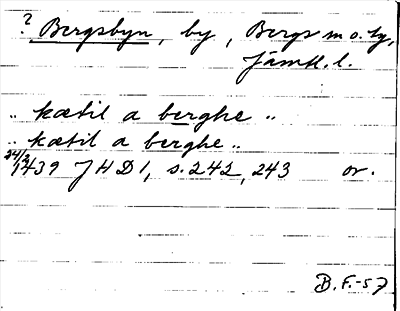 ? Bergsbyn, by, Bergs sn o. tg,
Jämtl. l.
„ kætil a berghe „
„ kætil a berghe „
24/3 1439 JHD 1, s. 242, 243 or.
B.F.-57